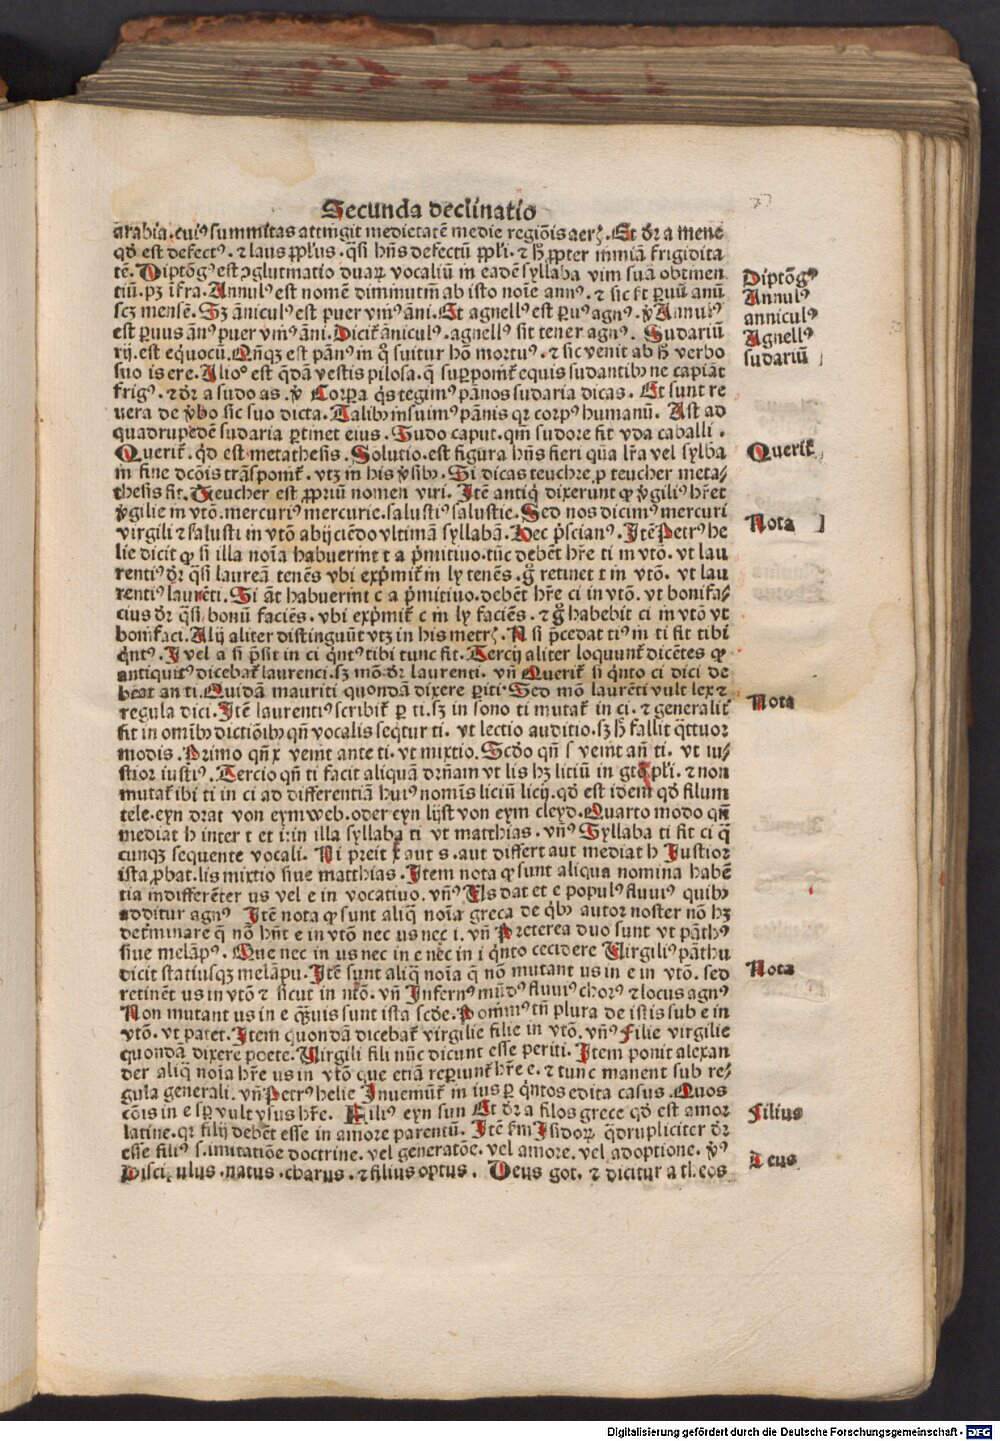 Secunda declinatio
arabia. cuiꝰ summitas attingit medietatē medie regiōis aerꝭ. Et dr̄ a mene
qd̓ est defectꝰ. ⁊ laus ꝓpl̓us. q̄si hn̄s defectū ꝓpl̓i. ⁊ hꝫ ꝓpter nimiā frigidita
tē. Diptōgꝰ est ꝯglutinatio duaꝝ vocaliū in eadē syllaba vim suā obtinen
tiū. pꝫ in̄fra. Annulꝰ est nomē diminutiū ab isto noīe annꝰ. ⁊ sic est ꝑuū anū
scꝫ mensē. Sꝫ āniculꝰ est puer vniꝰ āni. Et agnellꝰ est ꝑuꝰ agnꝰ. v̓ Annulꝰ
est ꝑuus ānꝰ puer vniꝰ āni. Dicit̄ āniculꝰ. agnellꝰ sit tener agnꝰ. Sudariū
rij. est equocū. Qn̄qꝫ est pānꝰ in q̄ suitur hō mortuꝰ. ⁊ sic venit ab hꝫ verbo
suo is ere. Alioꝰ est q̄dā vestis pilosa. q̄ suꝑponit̄ equis sudantibꝫ ne capiāt
frigꝰ. ⁊ dr̄ a sudo as. v̓ Corꝑa q̄s tegimꝰ pānos sudaria dicas. Et sunt re
uera de v̓bo sic suo dicta. Talibꝫ insuimꝰ pānis qr corpꝰ humanū. Ast ad
quadrupedē sudaria ꝑtinet eius. Sudo caput. qm̄ sudore fit vda caballi.
Querit̄. qd̓ est metathesis. Solutio. est figura hn̄s fieri qn̄ a lr̄a vel sylba
in fine dcōis trāsponit̄. vtꝫ in his v̓sibꝫ. Si dicas teuchre ꝑ teucher meta⸗
thesis fit. Teucher est ꝓpriū nomen viri. Itē antiqi̓ dixerunt ꝙ v̓giliꝰ hr̄et
v̓gilie in vtō. mercuriꝰ mercurie. salustiꝰ salustie. Sed nos dicimꝰ mercuri
virgili ⁊ salusti in vtō abijciēdo vltimā syllabā. Hec p̓scianꝰ. Itē Petrꝰ he
lie dicit ꝙ si illa noīa habuerint t a p̓mitiuo. tūc debēt hr̄e ti in vtō. vt lau
rentiꝰ dr̄ q̄si laureā tenēs vbi exp̓mit̄ in ly tenēs. g̊ retinet t in vtō. vt lau
rentiꝰ laurēti. Si āt habuerint c a p̓mitiuo. debēt hr̄e ci in vtō. vt bonifa⸗
cius dr̄ q̄si bonū faciēs. vbi exp̓mit̄ c in ly faciēs. ⁊ g̊ habebit ci in vtō vt
bonifaci. Alij aliter distinguūt vtꝫ in his metrꝭ. N si p̄cedat tiꝰ in ti fit tibi
q̓ntꝰ. I vel a si p̄sit in ci q̓ntꝰ tibi tunc fit. Tercij aliter loquunt̄ dicētes ꝙ
antiquitꝰ dicebat̄ laurenci. sꝫ mō dr̄ laurenti. vn̄ Querit̄ si q̓nto ci dici de
beat an ti. Quidā mauriti quondā dixere ꝑiti. Sed mō laurēti vult lex ⁊
regula dici. Itē laurentiꝰ scribit̄ ꝑ ti. sꝫ in sono ti mutat̄ in ci. ⁊ generalit̄
fit in omībꝫ dictiōibꝫ qn̄ vocalis seqtur ti. vt lectio auditio. sꝫ hꝫ fallit q̄ttuor
modis. Primo qn̄ x venit ante ti. vt mixtio. Scd̓o qn̄ s venit an̄ ti. vt iu⸗
stior iustiꝰ. Tercio qn̄ ti facit aliquā dr̄nam vt lis hꝫ litiū in gtō pl̓i. ⁊ non
mutat̄ ibi ti in ci ad differentiā huiꝰ nominis liciū licij. qd̓ est idem qd̓ filum
tele. eyn drat von eym web. oder eyn lijst von eym cleyd. Quarto modo qn̄
mediat h inter t et i: in illa syllaba ti vt matthias. vn̄ꝰ Syllaba ti fit ci q̄
cunqꝫ sequente vocali. Ni preit x aut s. aut differt aut mediat h Iustior
ista ꝓbat. lis mixtio siue matthias. Item nota ꝙ sunt aliqua nomina habē
tia indifferēter us vel e in vocatiuo. vn̄ꝰ Us dat et e populꝰ fluuiꝰ quibꝫ
additur agnꝰ Itē nota ꝙ sunt aliq̄ noīa greca de q̓bꝫ autor noster nō hꝫ
det̓minare q̄ nō hn̄t e in vtō nec us nec i. vn̄ Preterea duo sunt vt pāthꝰ
siue melāpꝰ. Que nec in us nec in e nec in i q̓nto cecidere Virgiliꝰ pāthu
dicit statiusqꝫ melāpu. Itē sunt aliq̄ noīa q̄ nō mutant us in e in vtō. sed
retinēt us in vtō ⁊ sicut in ntō. vn̄ Infernꝰ mūdꝰ fluuiꝰ chorꝰ ⁊ locus agnꝰ
Non mutant us in e q̄uis sunt ista scd̓e. Ponimꝰ tn̄ plura de istis sub e in
vtō. vt patet. Item quondā dicebat̄ virgilie filie in vtō. vn̄ꝰ Filie virgilie
quondā dixere poete. Virgili fili nūc dicunt esse periti. Item ponit alexan
der aliq̄ noīa hr̄e us in vtō que etiā reperiunt̄ hr̄e e. ⁊ tunc manent sub re⸗
gula generali. vn̄ Petrꝰ helie Inuenit̄ in ius ꝑ q̓ntos edita casus. Quos
cōis in e sꝑ vult vsus hr̄e. Filiꝰ eyn sun Et dr̄ a filos grece qd̓ est amor
latine. qr filij debēt esse in amore parentū. Itē sm̄ Isidoꝝ q̄drupliciter dr̄
esse filiꝰ s. imitatiōe doctrine. vel generatōe. vel amore. vel adoptione. v̓ꝰ
Disci ulus. natus. charus. ⁊ filius optus. Deus got. ⁊ dicitur a tl. eos
Diptōgꝰ
Annulꝰ
anniculꝰ
Agnellꝰ
sudariū
Querit̄
Nota
Nota
Nota
Filius
Deus
Digitalisierung gefördert durch die Deutsche Forschungsgemeinschaft - DFG